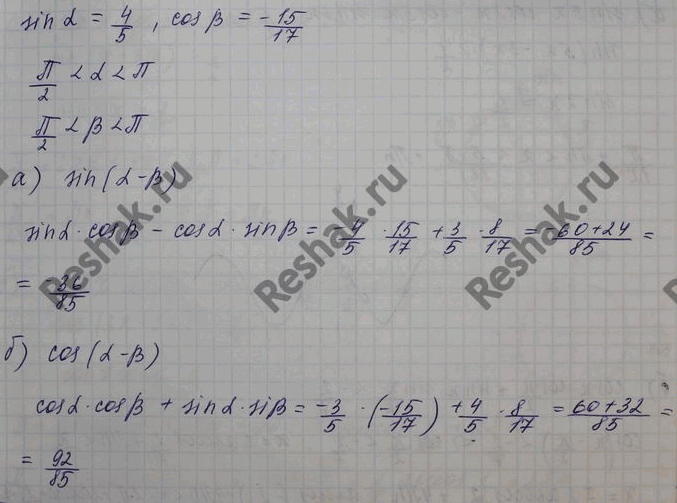 sin α = 4/5 , cos β = -15/17
π/2 < α < π
π/2 < β < π
а) sin(α-β)
sinα·cosβ - cosα·sinβ = -4/5 · 15/17 + 3/5 · 8/17 = -60+24/85 =
= -36/85
б) cos(α-β)
cosα·cosβ + sinα·siβ = -3/5 · (-15/17) + 4/5 · 8/17 = 60+32/85 =
= 92/85
Reshak.ru
Reshak.ru
Reshak.ru